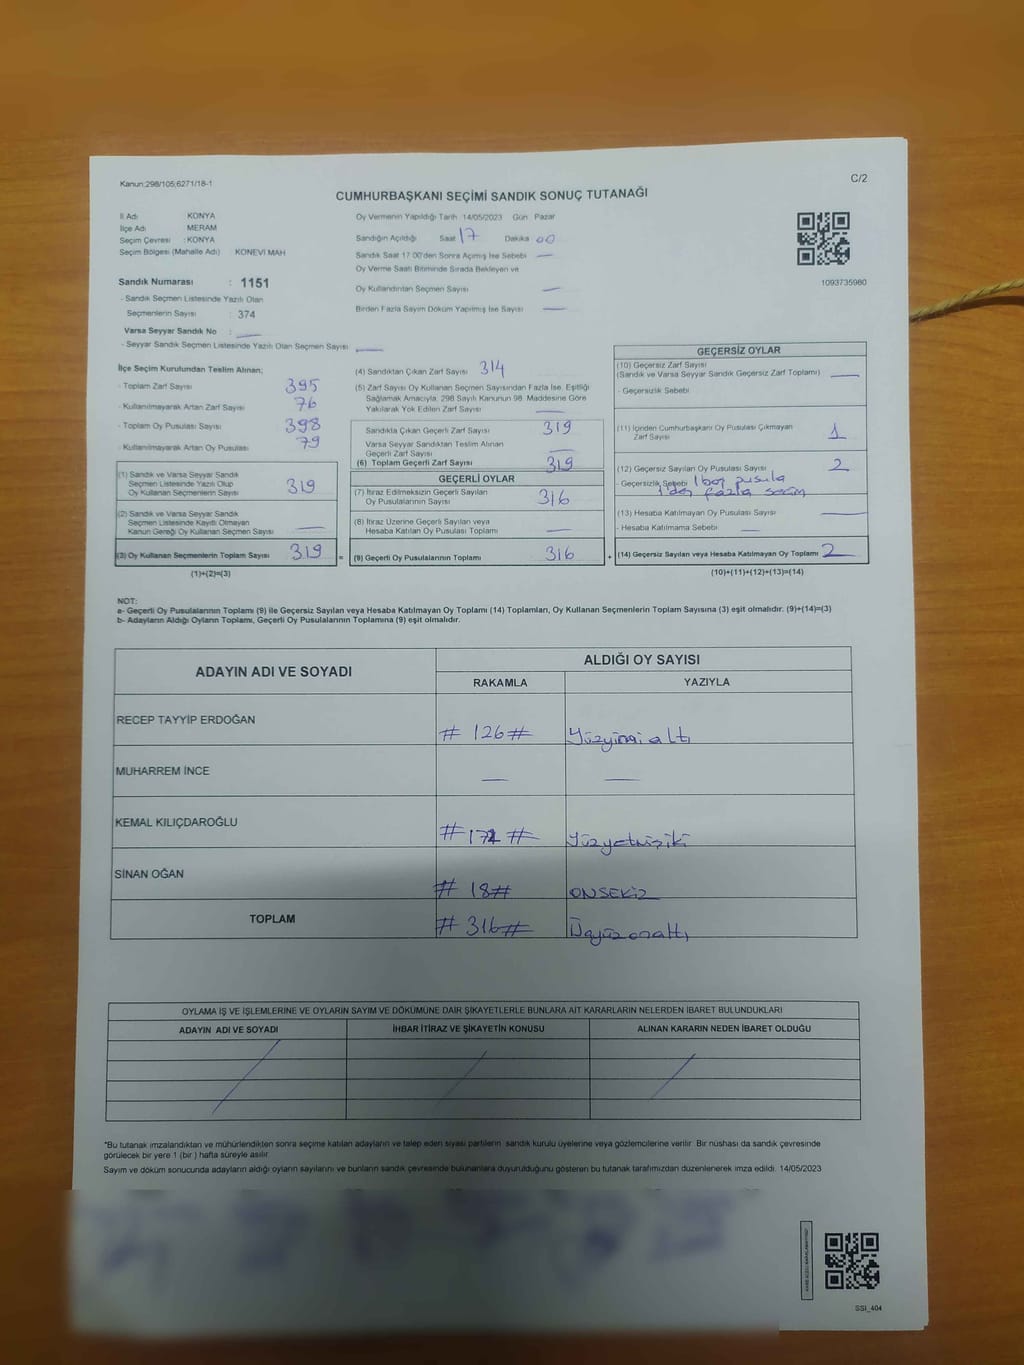 Kanun:298/105;6271/18-1
C/2
CUMHURBAŞKANI SEÇİMİ SANDIK SONUÇ TUTANAĞI
İl Adı KONYA
İlçe Adı MERAM
Seçim Çevresi :KONYA
Seçim Bölgesi (Mahalle Adı) KONEVİ MAH
Sandık Numarası : 1151
- Sandık Seçmen Listesinde Yazılı Olan
Seçmenlerin Sayısı : 374
Varsa Seyyar Sandık No :
- Seyyar Sandık Seçmen Listesinde Yazılı Olan Seçmen Sayısı
Oy Vermenin Yapıldığı Tarih 14/05/2023 Gün Pazar
Sandığın Açıldığı Saat 17 Dakika 00
Sandık Saat 17:00'den Sonra Açılmış İse Sebebi
Oy Verme Saati Bitiminde Sırada Bekleyen ve
Oy Kullandırılan Seçmen Sayısı
Birden Fazla Sayım Döküm Yapılmış İse Sayısı
1093735980
İlçe Seçim Kurulundan Teslim Alınan;
- Toplam Zarf Sayısı 395
- Kullanılmayarak Artan Zarf Sayısı 76
- Toplam Oy Pusulası Sayısı 398
- Kullanılmayarak Artan Oy Pusulası 79
(1) Sandık ve Varsa Seyyar Sandık
Seçmen Listesinde Yazılı Olup
Oy Kullanan Seçmenlerin Sayısı 319
(2) Sandık ve Varsa Seyyar Sandık
Seçmen Listesinde Kayıtlı Olmayan
Kanun Gereği Oy Kullanan Seçmen Sayısı
(3) Oy Kullanan Seçmenlerin Toplam Sayısı 319 =
(1)+(2)=(3)
(4) Sandıktan Çıkan Zarf Sayısı 314
(5) Zarf Sayısı Oy Kullanan Seçmen Sayısından Fazla İse, Eşitliği
Sağlamak Amacıyla, 298 Sayılı Kanunun 98. Maddesine Göre
Yakılarak Yok Edilen Zarf Sayısı
Sandıkta Çıkan Geçerli Zarf Sayısı 319
Varsa Seyyar Sandıktan Teslim Alınan
Geçerli Zarf Sayısı
(6) Toplam Geçerli Zarf Sayısı 319
GEÇERLİ OYLAR
(7) İtiraz Edilmeksizin Geçerli Sayılan
Oy Pusulalarının Sayısı 316
(8) İtiraz Üzerine Geçerli Sayılan veya
Hesaba Katılan Oy Pusulası Toplamı
(9) Geçerli Oy Pusulalarının Toplamı 316 +
GEÇERSİZ OYLAR
(10) Geçersiz Zarf Sayısı
(Sandık ve Varsa Seyyar Sandık Geçersiz Zarf Toplamı)
- Geçersizlik Sebebi
(11) İçinden Cumhurbaşkanı Oy Pusulası Çıkmayan
Zarf Sayısı 1
(12) Geçersiz Sayılan Oy Pusulası Sayısı 2
- Geçersizlik Sebebi 1 boş pusula
1'den fazla seçim
(13) Hesaba Katılmayan Oy Pusulası Sayısı
- Hesaba Katılmama Sebebi
(14) Geçersiz Sayılan veya Hesaba Katılmayan Oy Toplamı 2
(10)+(11)+(12)+(13)=(14)
NOT:
a- Geçerli Oy Pusulalarının Toplamı (9) ile Geçersiz Sayılan veya Hesaba Katılmayan Oy Toplamı (14) Toplamları, Oy Kullanan Seçmenlerin Toplam Sayısına (3) eşit olmalıdır. (9)+(14)=(3)
b- Adayların Aldığı Oyların Toplamı, Geçerli Oy Pusulalarının Toplamına (9) eşit olmalıdır.
ADAYIN ADI VE SOYADI ALDIĞI OY SAYISI
RAKAMLA YAZIYLA
RECEP TAYYİP ERDOĞAN # 126 # Yüzyirmialtı
MUHARREM İNCE
KEMAL KILIÇDAROĞLU # 172 # Yüzyetmişiki
SİNAN OĞAN # 18 # ONSEKİZ
TOPLAM # 316 # Üçyüzonaltı
OYLAMA İŞ VE İŞLEMLERİNE VE OYLARIN SAYIM VE DÖKÜMÜNE DAİR ŞİKAYETLERLE BUNLARA AİT KARARLARIN NELERDEN İBARET BULUNDUKLARI
ADAYIN ADI VE SOYADI İHBAR İTİRAZ VE ŞİKAYETİN KONUSU ALINAN KARARIN NEDEN İBARET OLDUĞU
*Bu tutanak imzalandıktan ve mühürlendikten sonra seçime katılan adayların ve talep eden siyasi partilerin sandık kurulu üyelerine veya gözlemcilerine verilir. Bir nüshası da sandık çevresinde
görülecek bir yere 1 (bir ) hafta süreyle asılır.
Sayım ve döküm sonucunda adayların aldığı oyların sayılarını ve bunların sandık çevresinde bulunanlara duyurulduğunu gösteren bu tutanak tarafımızdan düzenlenerek imza edildi. 14/05/2023
SSI_404